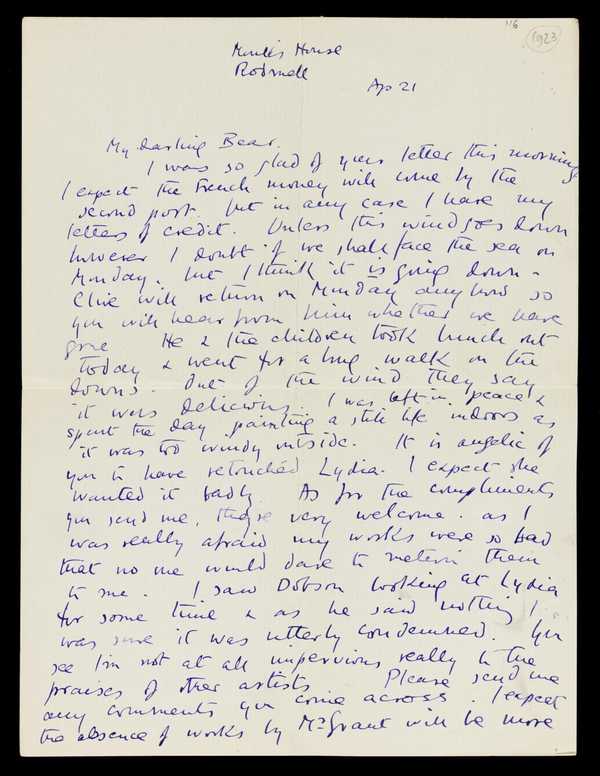 116
1923
Monk's House
Rodmell
Ap 21
My darling Bear.
I was so glad of your letter this morning
I expect the French money will come by the
second post. but in any case I have my
letters of credit. Unless this wind goes down
however I doubt if we shall face the sea on
Monday. but I think it is going down -
Clive will return on Monday anyhow so
you will hear from him whether we have
gone He & the children took lunch out
today & went for a long walk on the
downs. Out of the wind they say
it was delicious. I was left in peace &
spent the day painting a still life indoors as
it was too windy outside. It is angelic of
you to have retouched Lydia. I expect she
wanted it badly. As for the compliments
you send me, they're very welcome. as I
was really afraid my works were so bad
that no one would dare to mention them
to me. I saw Dobson looking at Lydia
for some time & as he said nothing I
was sure it was utterly condemned. You
see I'm not at all impervious really to the
praises of other artists Please send me
any comments you come across. I expect
the absence of works by Mr Grant will be more